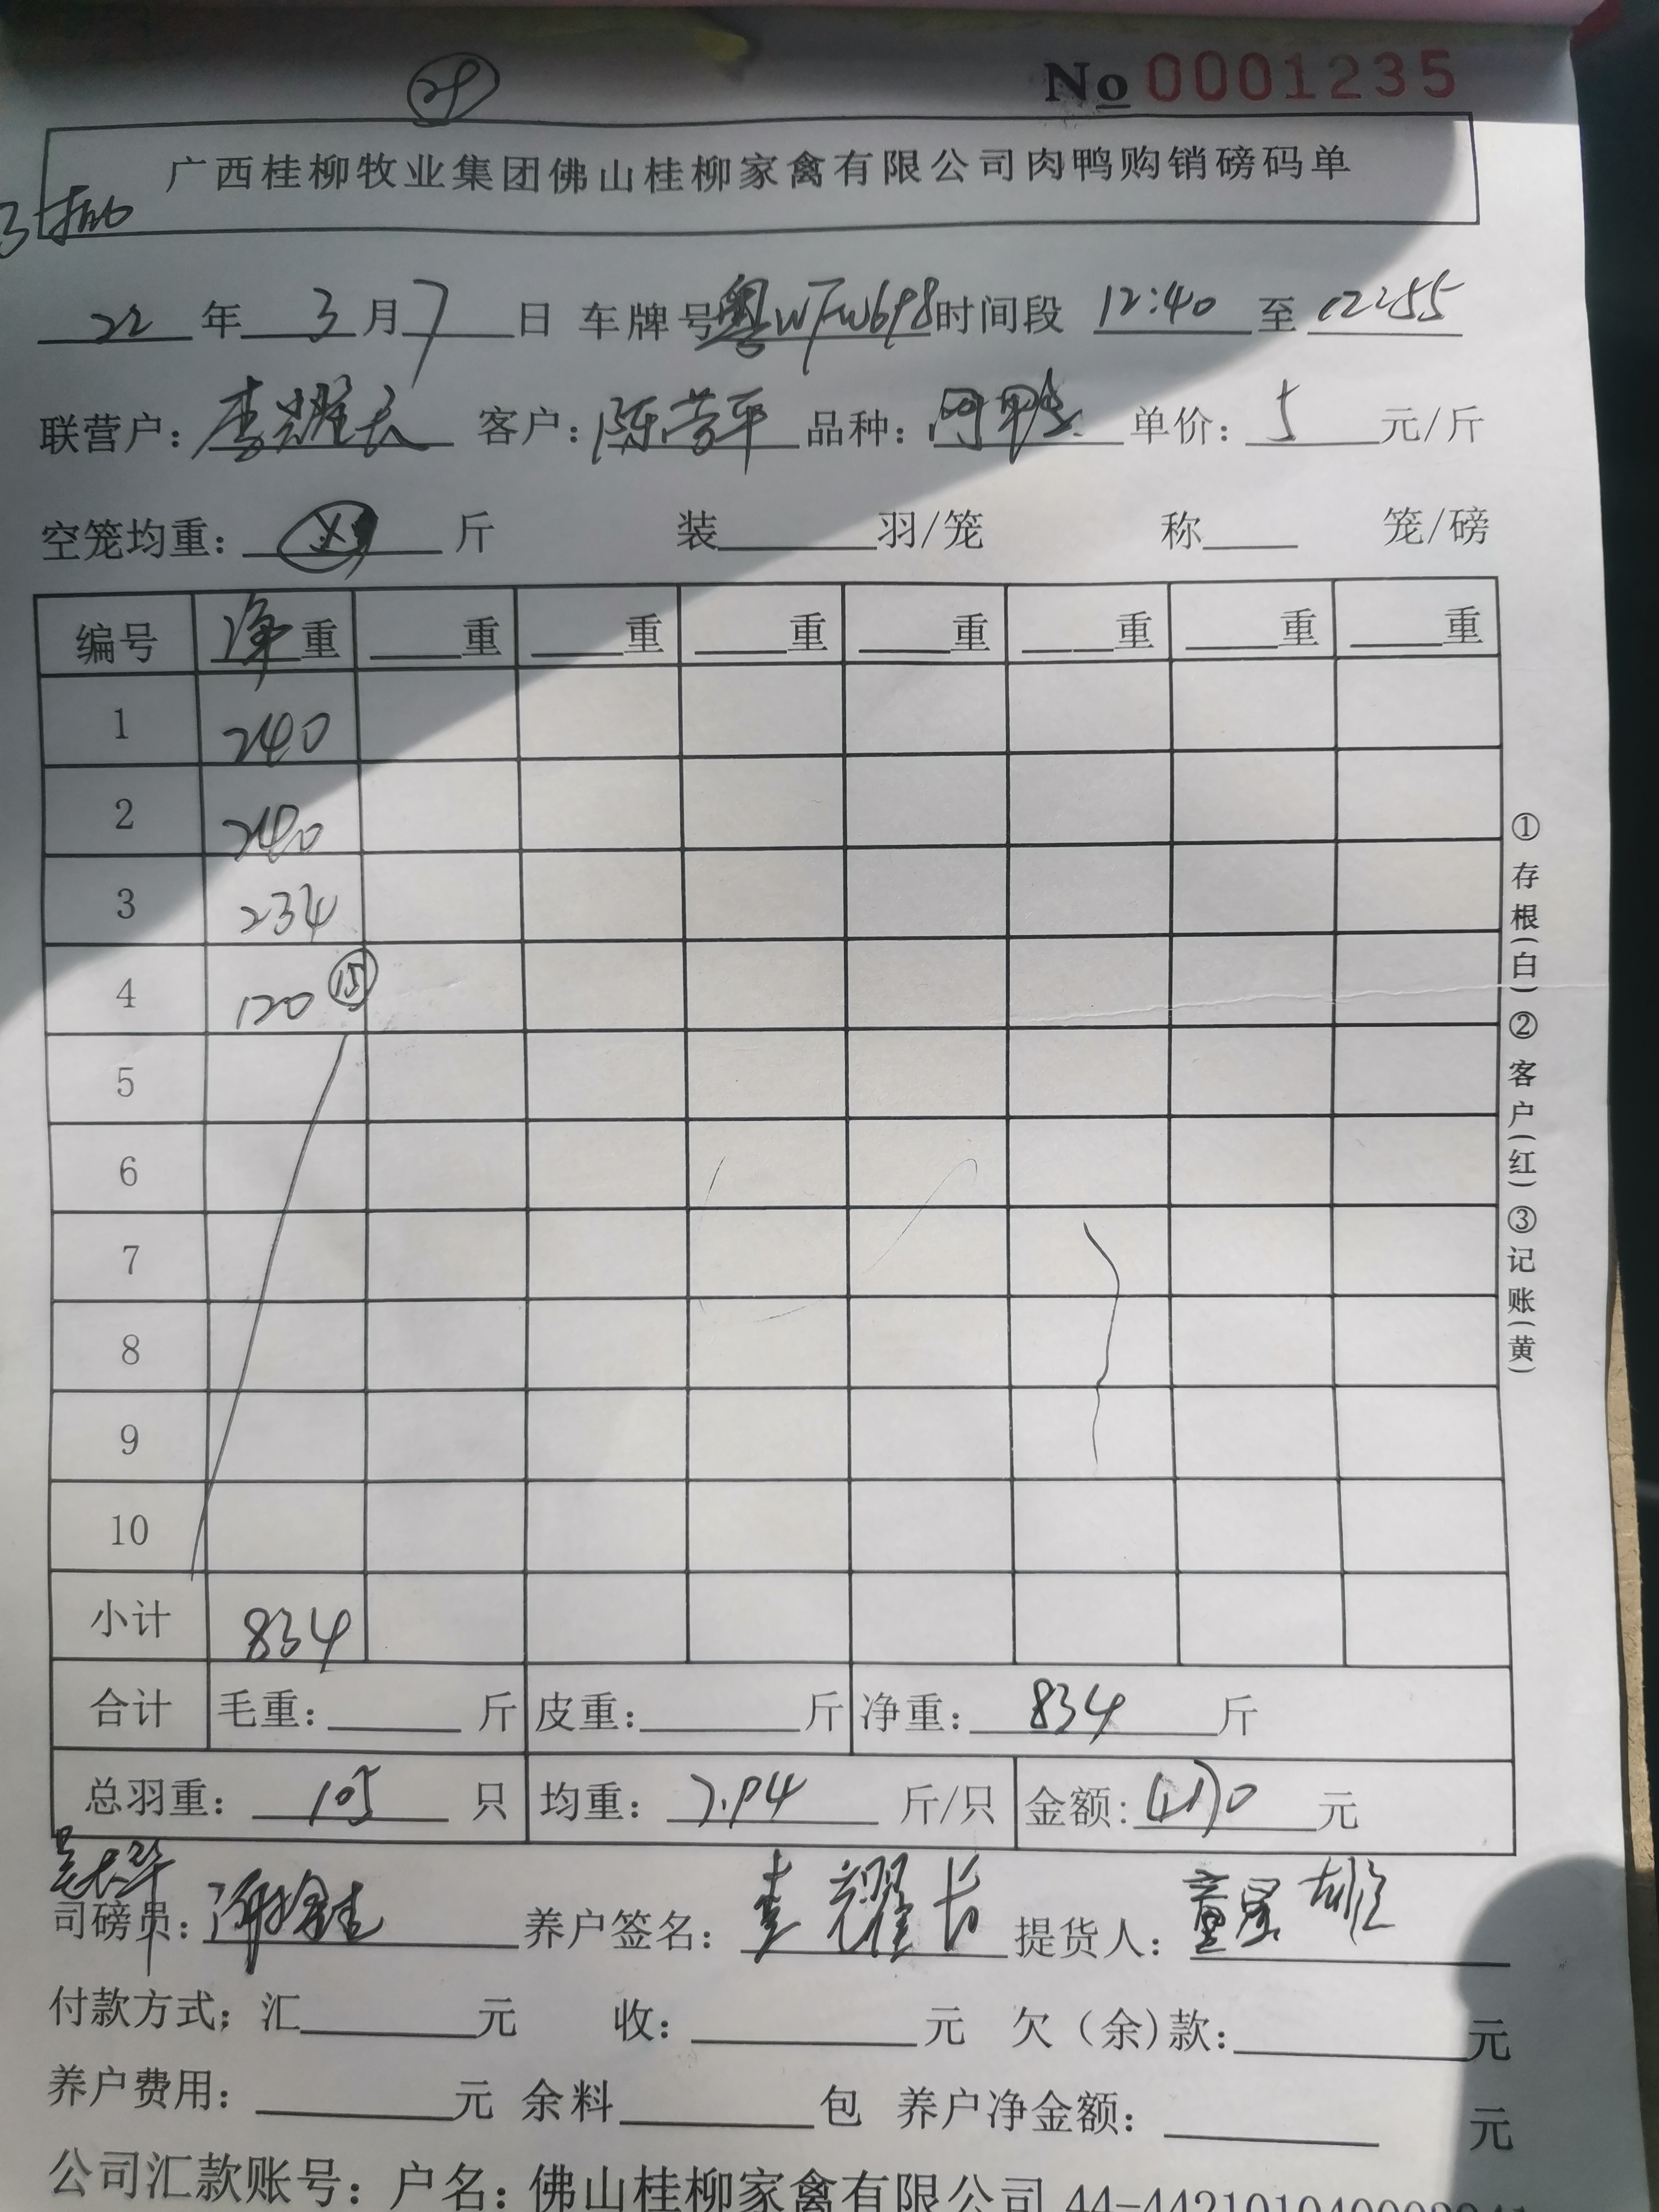 No 0001235
广西桂柳牧业集团佛山桂柳家禽有限公司肉鸭购销磅码单
22 年 3 月 7 日 车牌号 粤 时间段 12:40 至 12:55
联营户: 李耀长 客户: 陈劳平 品种: 单价: 5 元/斤
空笼均重: 斤 装 羽/笼 称 笼/磅
编号 净重 重 重 重 重 重 重 重
1 240
2 240
3 234
4 120 ⑮
5
6
7
8
9
10
小计 834
合计 毛重: 斤 皮重: 斤 净重: 834 斤
总羽重: 105 只 均重: 7.94 斤/只 金额: 4170 元
司磅员: 养户签名: 李耀长 提货人: 雄
付款方式; 汇 元 收: 元 欠(余)款: 元
养户费用: 元 余料 包 养户净金额: 元
公司汇款账号: 户名: 佛山桂柳家禽有限公司
①存根(白)②客户(红)③记账(黄)